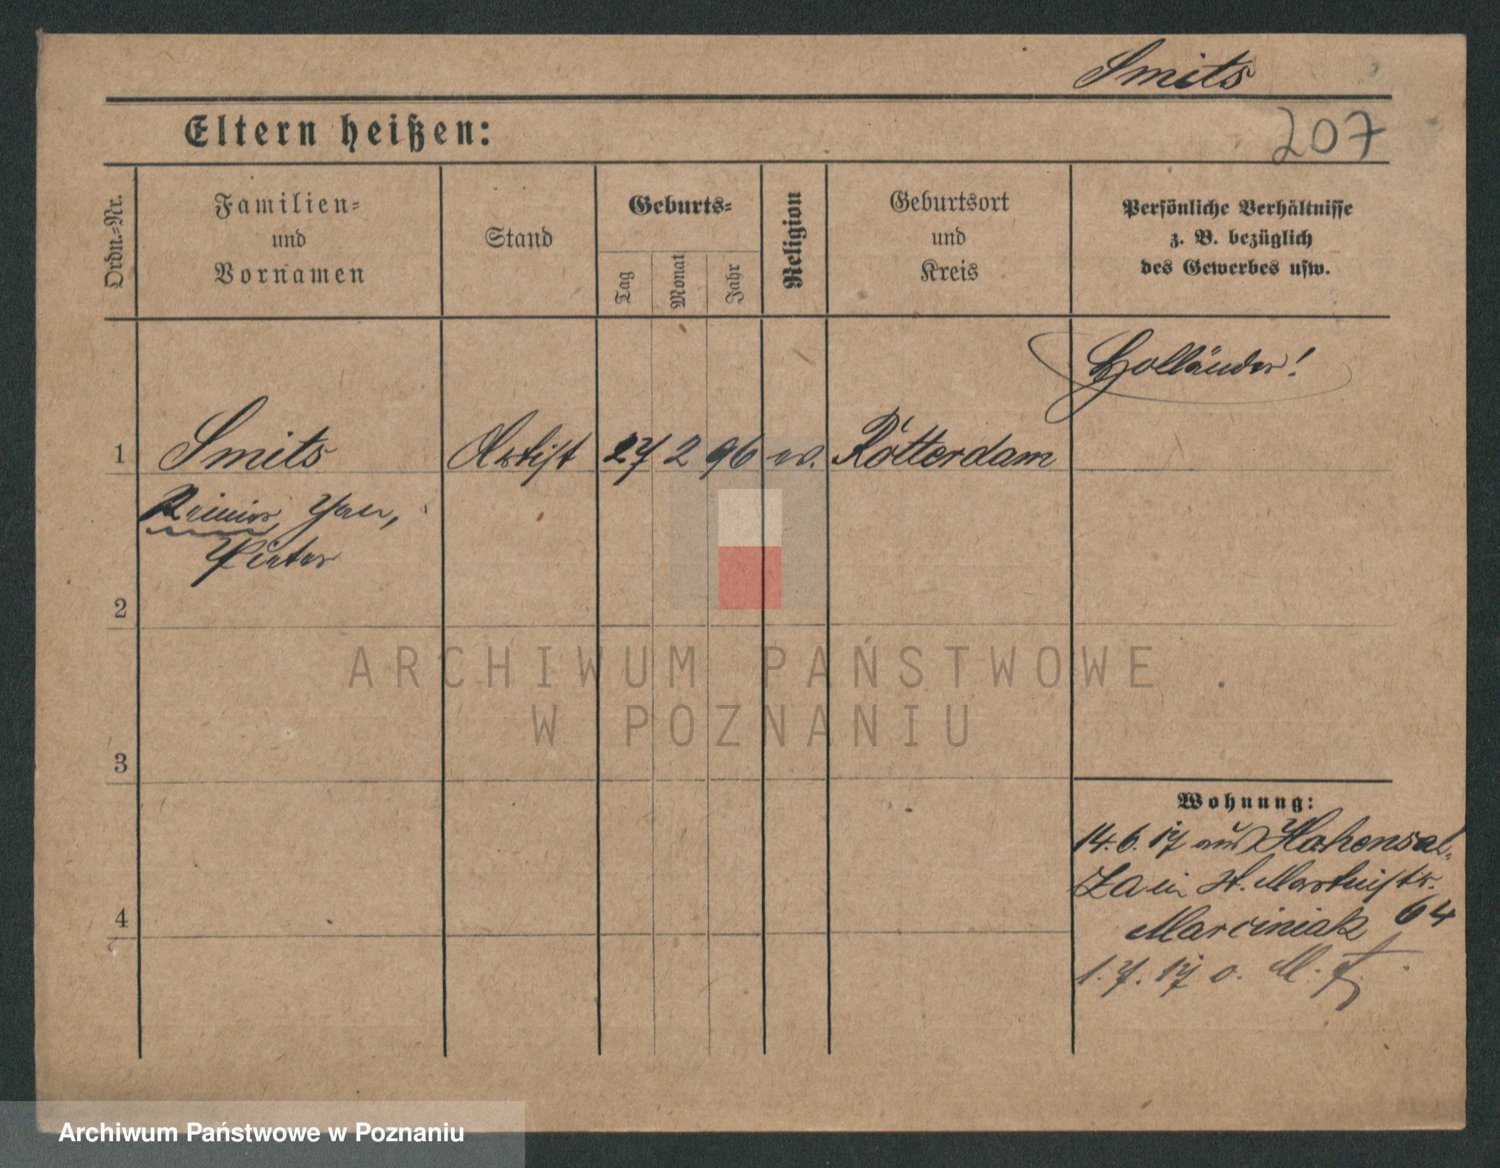 Smits
Eltern heißen:
207
Ordn.-Nr.
Familien-
und
Vornamen
Stand
Geburts-
Tag
Monat
Jahr
Religion
Geburtsort
und
Kreis
Persönliche Verhältnisse
z. B. bezüglich
des Gewerbes usw.
Holländer!
1 Smits Artist 27 2 96 ev. Rotterdam
Reinier, Jan,
Pieter
2
3
4
Wohnung:
14.6.17 aus Hohensal-
za in St. Martinstr.
Marciniak 64
1.7.17 o.
ARCHIWUM PAŃSTWOWE
W POZNANIU
Archiwum Państwowe w Poznaniu